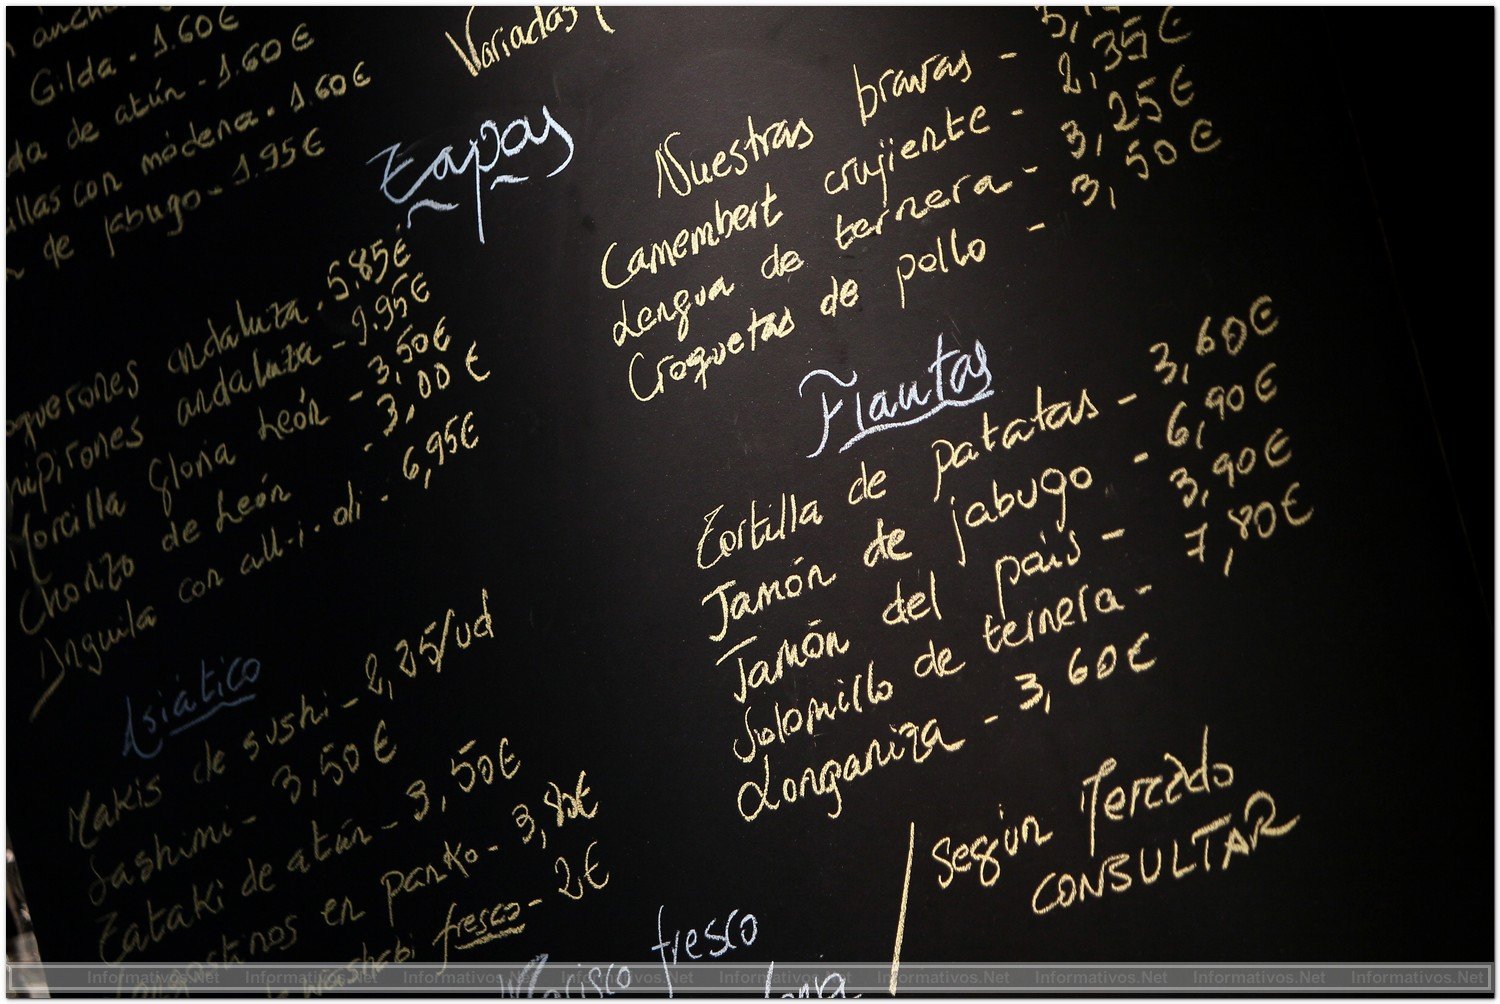 Gilda - 1.60€
de atún - 1.60€
con módena - 1.60€
de jabugo - 1.95€
andaluza - 5.85€
andaluza - 9.95€
Morcilla gloria León - 3,50€
Chorizo de León - 3,00€
Anguila con all-i-oli - 6,95€
Asiático
Makis de sushi - 2,25/ud
Sashimi - 3,50€
Tataki de atún - 3,50€
en panko - 3,80€
washabi fresco - 2€
Variadas
Tapas
Nuestras bravas -
Camembert crujiente - 2,35€
Lengua de ternera - 3,25€
Croquetas de pollo - 3,50€
Flautas
Tortilla de patatas - 3,60€
Jamón de jabugo - 6,90€
Jamón del país - 3,90€
Solomillo de ternera - 7,80€
Longaniza - 3,60€
Marisco fresco
Según Mercado
CONSULTAR
Informativos.Net Informativos.Net Informativos.Net Informativos.Net Informativos.Net Informativos.Net Informativos.Net Informativos.Net Informativos.Net